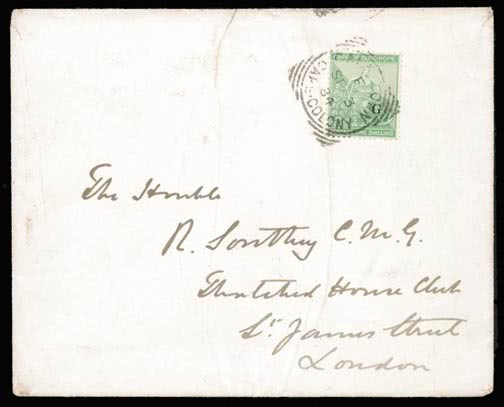 CAPE OF GOOD HOPE
G
ONE SHILLING
CAPE COLONY
The Honble
R. Southey C.M.G.
Thatched House Club
St James Street
London